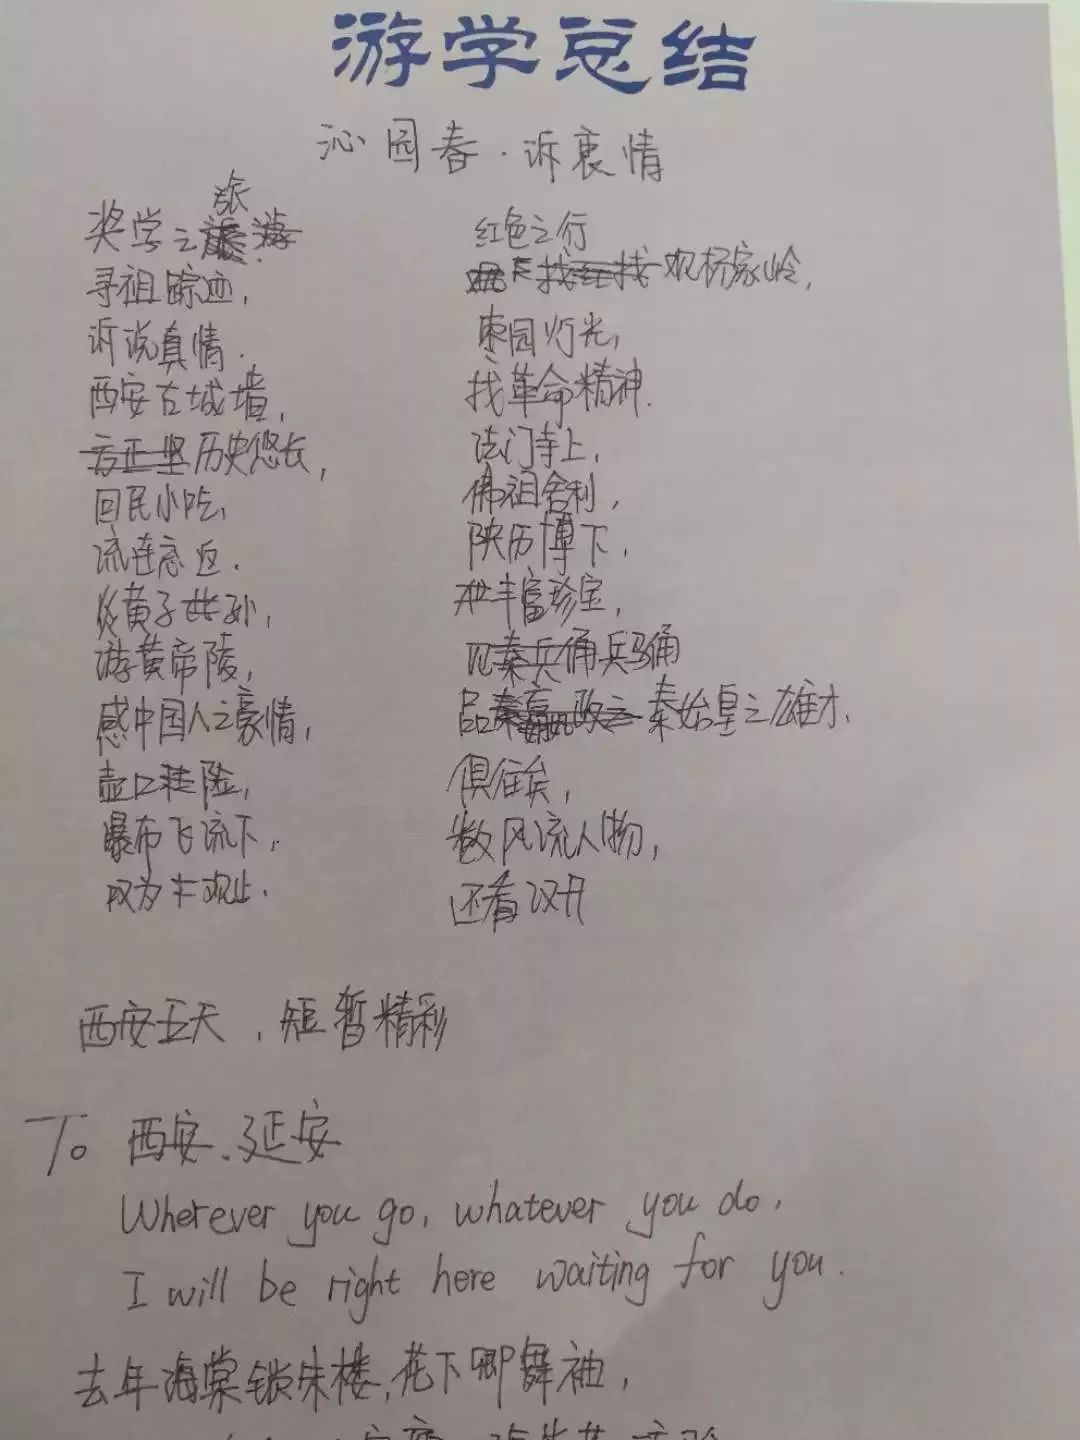 游学总结
沁园春·诉衷情
奖学之旅
寻祖踪迹,
诉说真情.
西安古城墙,
历史悠长,
回民小吃,
流连忘返.
炎黄子女孙,
游黄帝陵,
感中国人之豪情,
壶口
瀑布飞流下,
叹为观止.
红色之行
观杨家岭,
枣园灯光,
找革命精神.
法门寺上,
佛祖舍利,
陕历博下,
丰富珍宝,
兵马俑
品秦始皇之雄才.
俱往矣,
数风流人物,
还看汉开
西安五天,短暂精彩
To 西安、延安
Wherever you go, whatever you do,
I will be right here waiting for you.
去年海棠锁朱楼,花下卿舞袖,